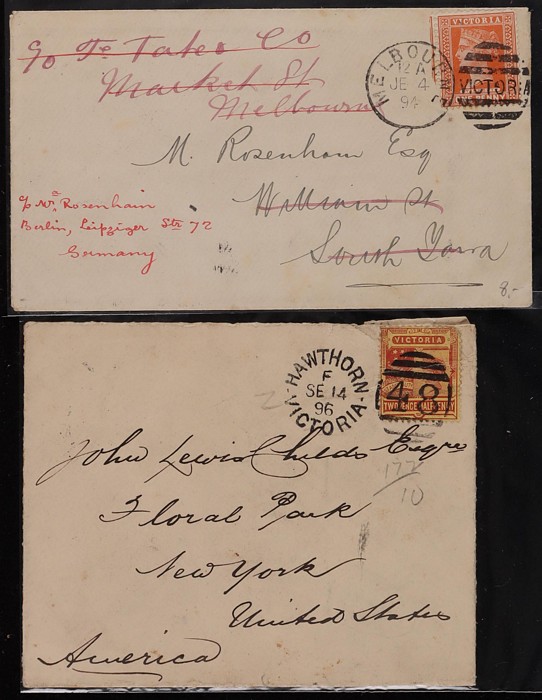 c/o Te Tates Co
Market St
Melbourn
VICTORIA
ONE PENNY
MELBOURNE
12 A
JE 4
94
VICTORIA
M. Rosenham Esq
William St
South Yarra
c/o Mr Rosenhain
Berlin, Leipziger Str 72
Germany
8.-
HAWTHORN
F
SE 14
96
VICTORIA
VICTORIA
TWO PENCE HALF PENNY
48
John Lewis Childs Esqre
Floral Park
New York
United States
America
172
10